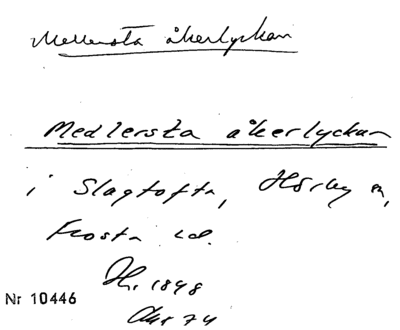 Mellersta åkerlyckan
Medlersta åkerlyckan
i Slagtofta, Hörby sn,
Frosta hd.
Hr. 1898
Nr 10446
74